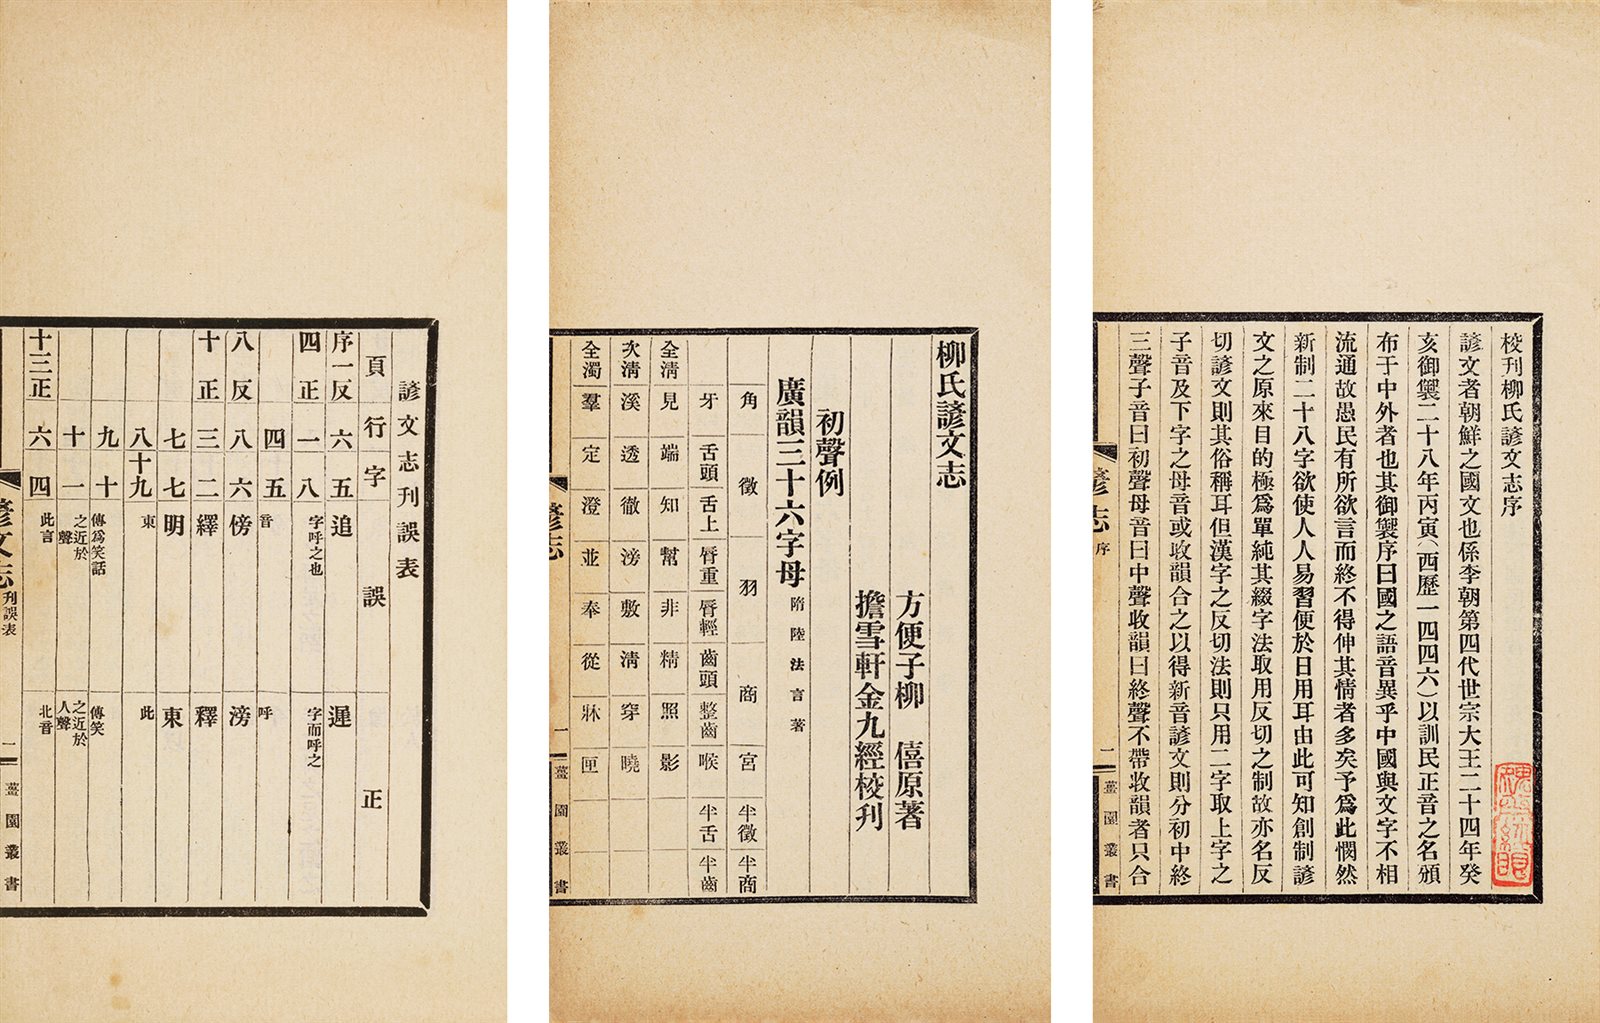 校刊柳氏諺文志序
諺文者朝鮮之國文也係李朝第四代世宗大王二十四年癸
亥御製二十八年丙寅(西歷一四四六)以訓民正音之名頒
布于中外者也其御製序曰國之語音異乎中國與文字不相
流通故愚民有所欲言而終不得伸其情者多矣予爲此憫然
新制二十八字欲使人人易習便於日用耳由此可知創制諺
文之原來目的極爲單純其綴字法取用反切之制故亦名反
切諺文則其俗稱耳但漢字之反切法則只用二字取上字之
子音及下字之母音或收韻合之以得新音諺文則分初中終
三聲子音曰初聲母音曰中聲收韻曰終聲不帶收韻者只合
諺志 序 二 薑園叢書
柳氏諺文志
方便子柳 僖原著
擔雪軒金九經校刊
初聲例
廣韻三十六字母 隋陸法言著
角 徵 羽 商 宮 半徵 半商
牙 舌頭 舌上 脣重 脣輕 齒頭 整齒 喉 半舌 半齒
全淸 見 端 知 幫 非 精 照 影
次淸 溪 透 徹 滂 敷 淸 穿 曉
全濁 羣 定 澄 並 奉 從 牀 匣
諺志 一 薑園叢書
諺文志刊誤表
頁 行 字 誤 正
序一反 六 五 追 遲
四正 一 八 字呼之也 字而呼之
四 五 音 呼
八反 八 六 傍 滂
十正 三 二 繹 釋
七 七 明 東
八 十九 東 此
九 十 傳爲笑話 傳笑
十 一 之近於聲 之近於人聲
十三正 六 四 此言 北音
諺文志 刊誤表 二 薑園叢書